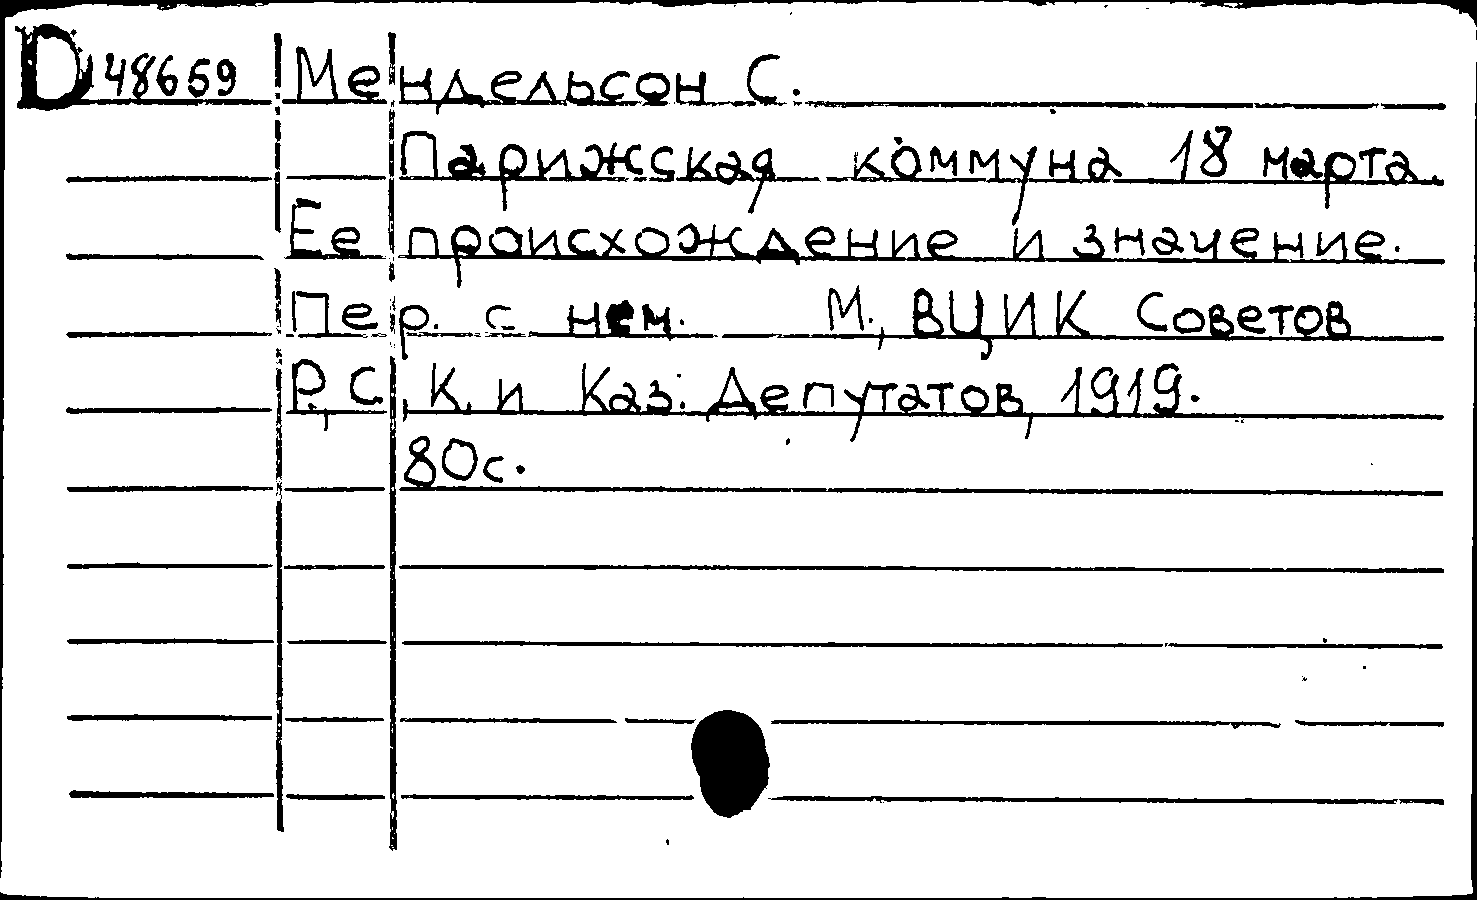 D 48659 Мендельсон С.
Парижская коммуна 18 марта.
Ее происхождение и значение.
Пер. с нем. М., ВЦИК Советов
Р., С., К. и Каз. Депутатов, 1919.
80с.